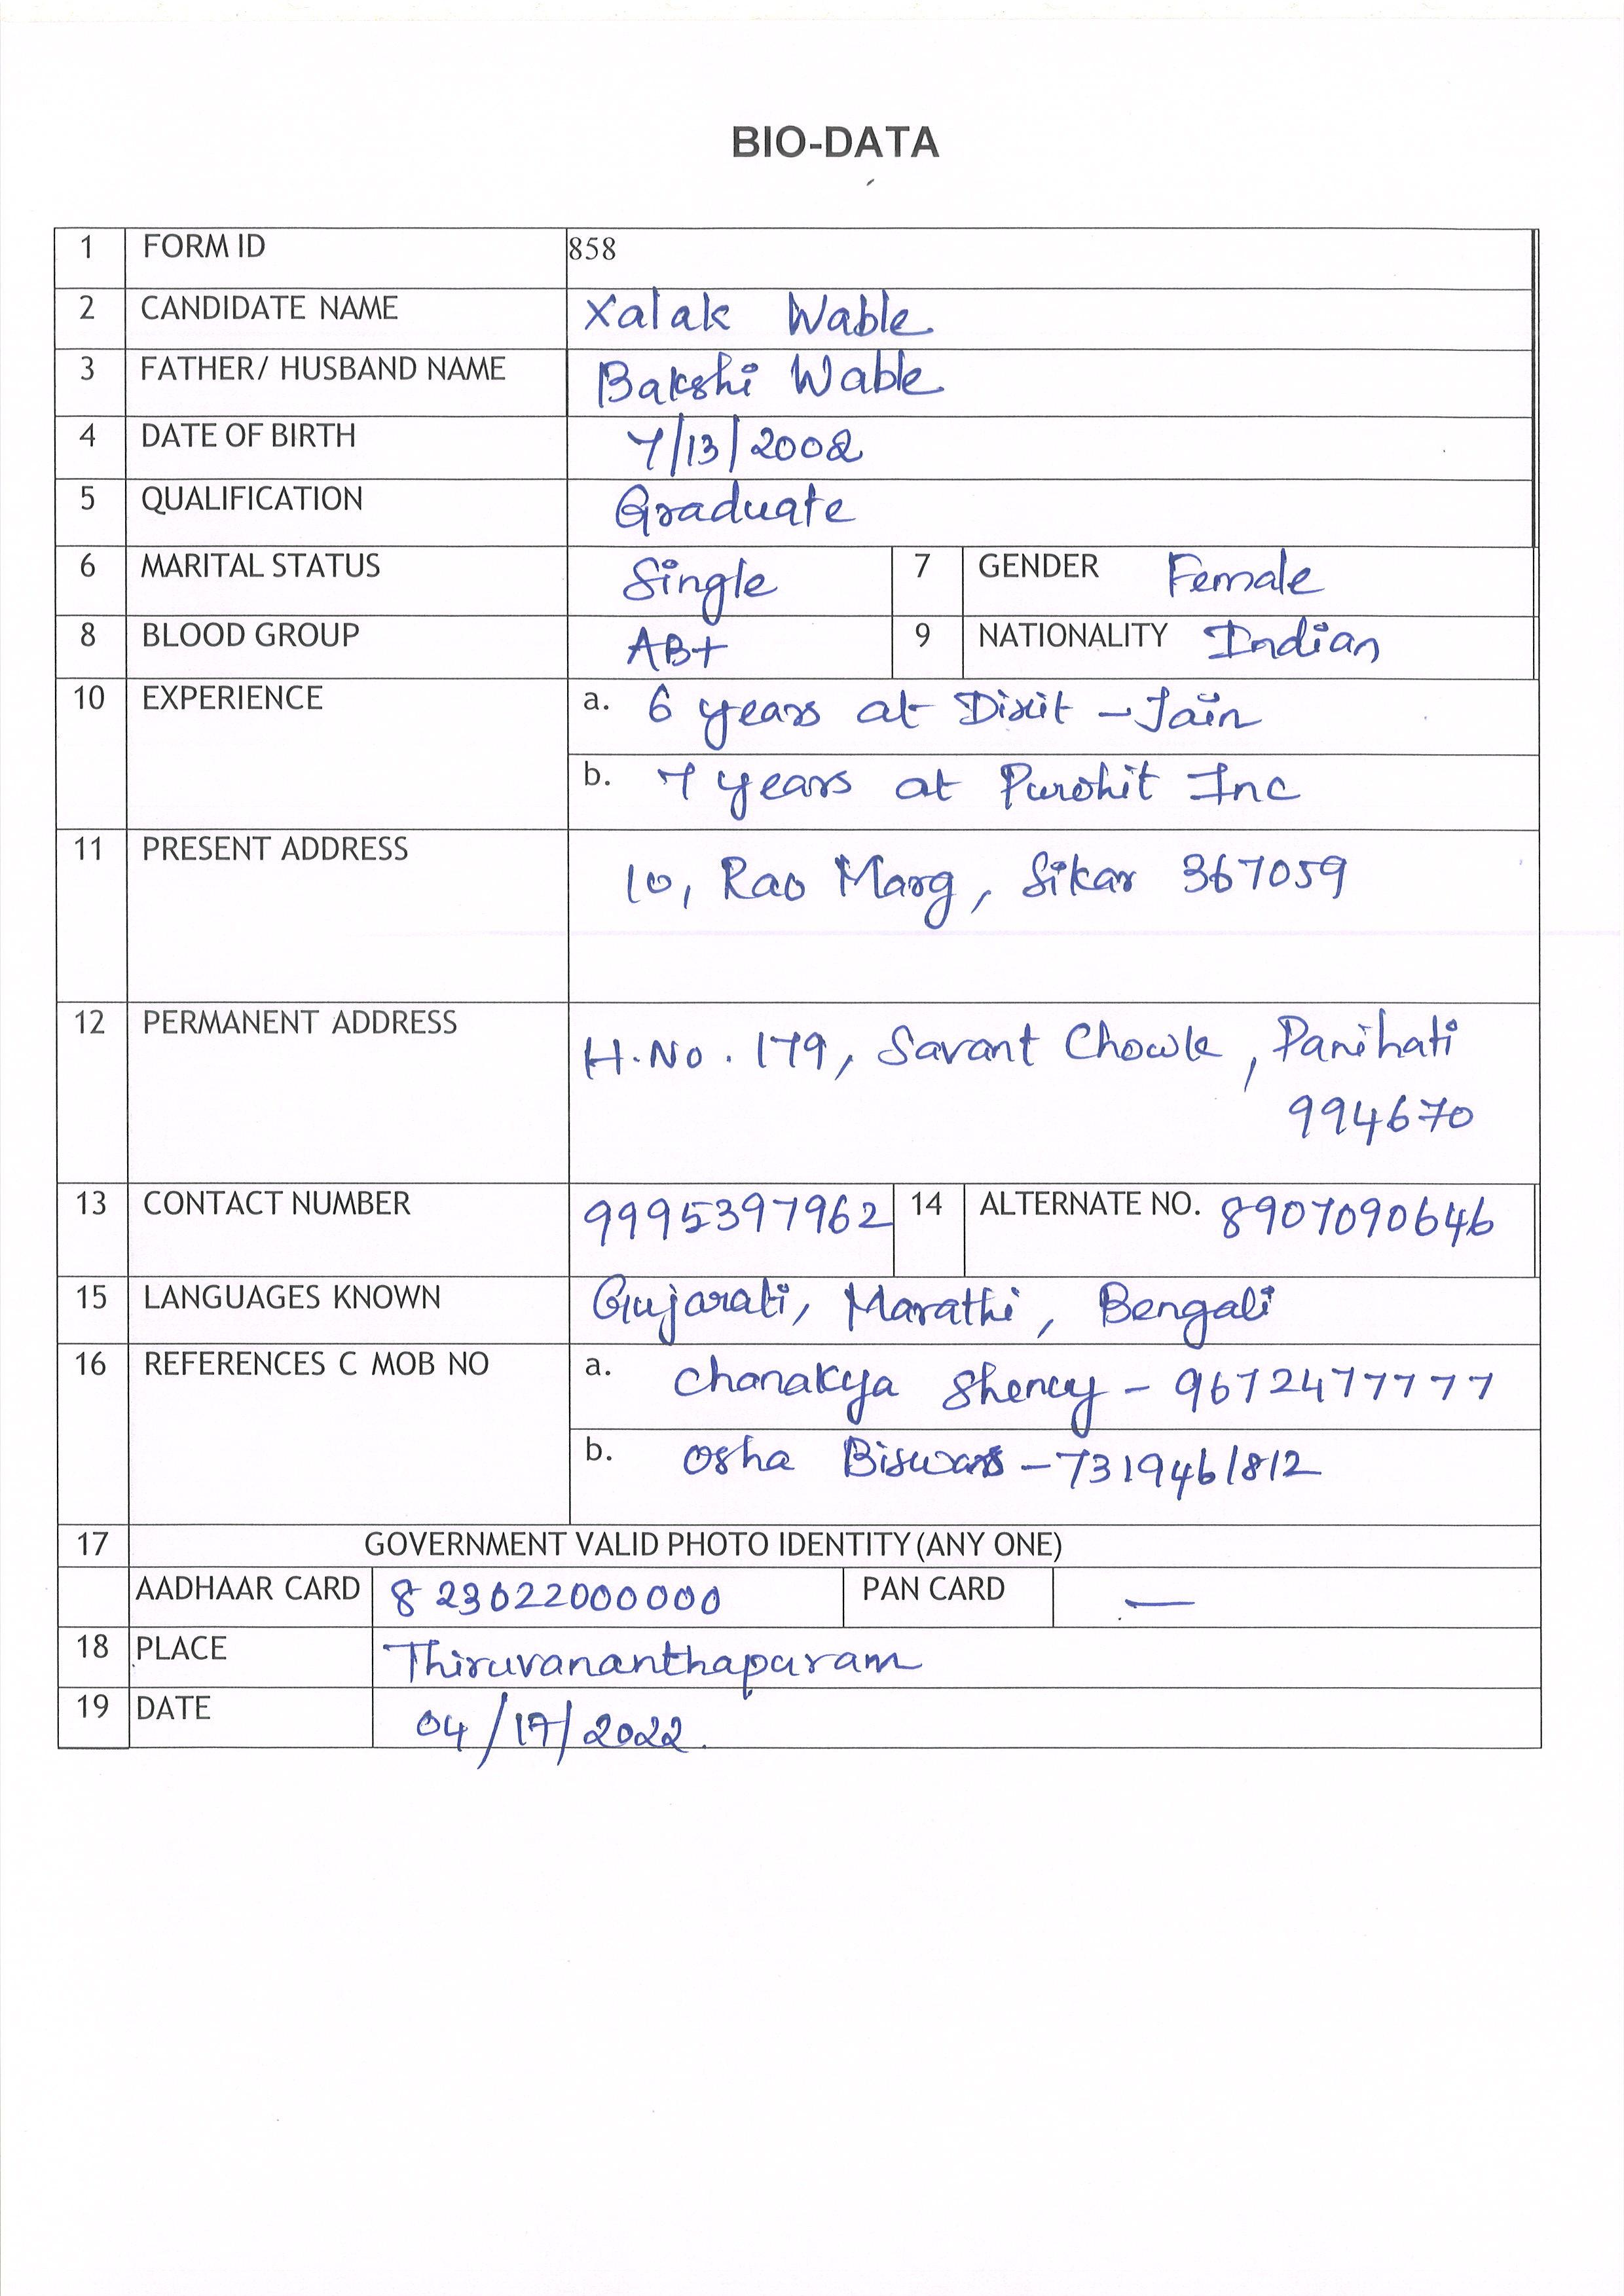 BIO-DATA
1 FORM ID 858
2 CANDIDATE NAME Xalak Wable
3 FATHER/ HUSBAND NAME Bakshi Wable
4 DATE OF BIRTH 7/13/2002
5 QUALIFICATION Graduate
6 MARITAL STATUS Single 7 GENDER Female
8 BLOOD GROUP AB+ 9 NATIONALITY Indian
10 EXPERIENCE a. 6 years at Dixit - Jain
b. 7 years at Purohit Inc
11 PRESENT ADDRESS 10, Rao Marg, Sikar 367059
12 PERMANENT ADDRESS H.No. 179, Savant Chowk, Panihati
994670
13 CONTACT NUMBER 9995397962 14 ALTERNATE NO. 8907090646
15 LANGUAGES KNOWN Gujarati, Marathi, Bengali
16 REFERENCES C MOB NO a. Chanakya Shenoy - 9672477777
b. Osha Biswas - 7319461812
17 GOVERNMENT VALID PHOTO IDENTITY (ANY ONE)
AADHAAR CARD 823622000000 PAN CARD —
18 PLACE Thiruvananthapuram
19 DATE 04/17/2022.